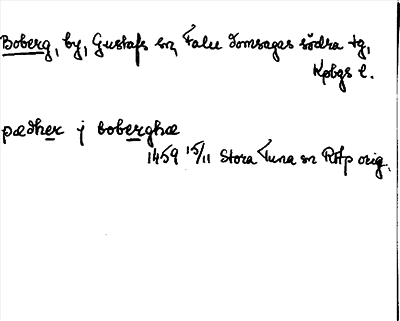 Boberg, by, Gustafs sn, Falu domsagas södra tg,
Kpbgs l.
pædher j boberghæ
1459 15/11 Stora Tuna sn RAp orig.